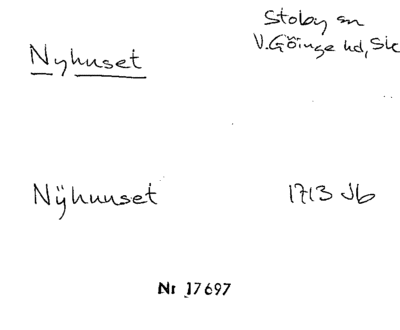 Stoby sn
V.Göinge hd, Sk
Nyhuset
Nÿhuuset 1713 Jb
Nr 17697